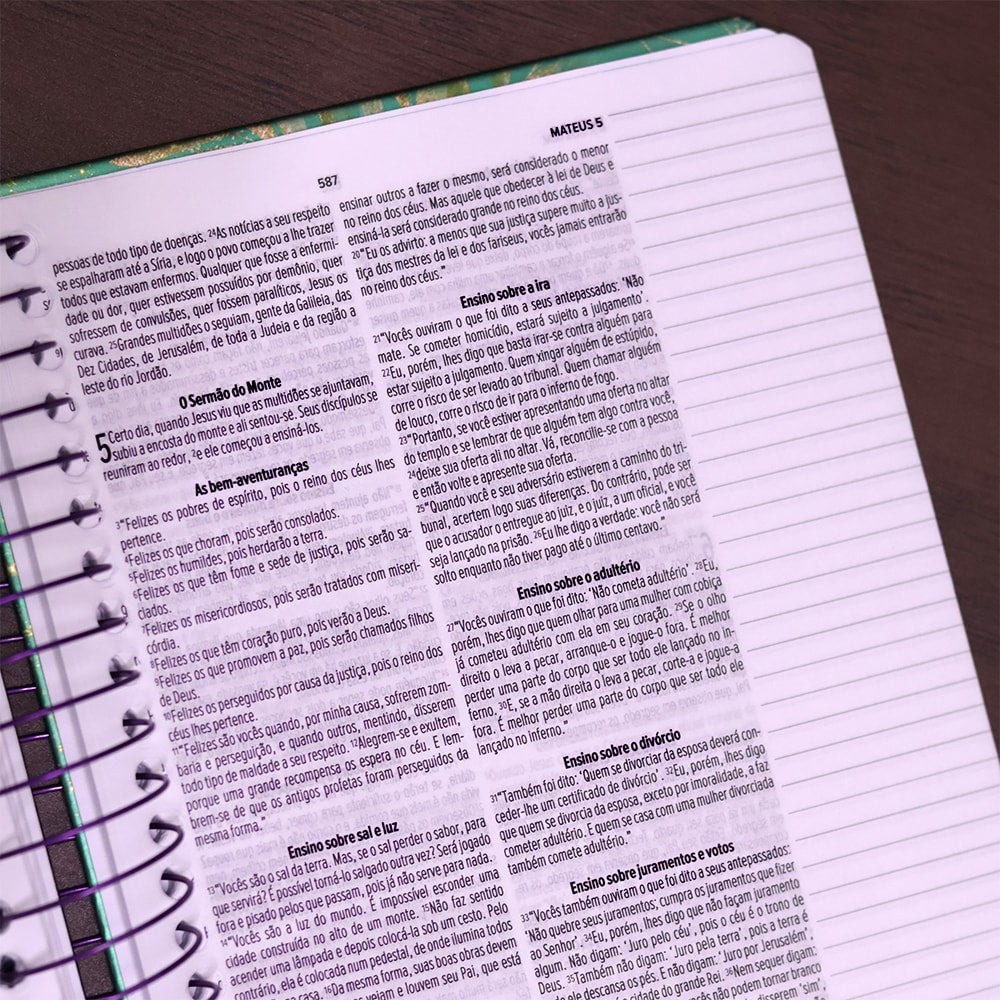 587
MATEUS 5
pessoas de todo tipo de doenças. ²⁴As notícias a seu respeito
se espalharam até a Síria, e logo o povo começou a lhe trazer
todos que estavam enfermos. Qualquer que fosse a enfermi-
dade ou dor, quer estivessem possuídos por demônio, quer
sofressem de convulsões, quer fossem paralíticos, Jesus os
curava. ²⁵Grandes multidões o seguiam, gente da Galileia, das
Dez Cidades, de Jerusalém, de toda a Judeia e da região a
leste do rio Jordão.
O Sermão do Monte
5 Certo dia, quando Jesus viu que as multidões se ajuntavam,
subiu a encosta do monte e ali sentou-se. Seus discípulos se
reuniram ao redor, ²e ele começou a ensiná-los.
As bem-aventuranças
³“Felizes os pobres de espírito, pois o reino dos céus lhes
pertence.
⁴Felizes os que choram, pois serão consolados.
⁵Felizes os humildes, pois herdarão a terra.
⁶Felizes os que têm fome e sede de justiça, pois serão sa-
ciados.
⁷Felizes os misericordiosos, pois serão tratados com miseri-
córdia.
⁸Felizes os que têm coração puro, pois verão a Deus.
⁹Felizes os que promovem a paz, pois serão chamados filhos
de Deus.
¹⁰Felizes os perseguidos por causa da justiça, pois o reino dos
céus lhes pertence.
¹¹“Felizes são vocês quando, por minha causa, sofrerem zom-
baria e perseguição, e quando outros, mentindo, disserem
todo tipo de maldade a seu respeito. ¹²Alegrem-se e exultem,
porque uma grande recompensa os espera no céu. E lem-
brem-se de que os antigos profetas foram perseguidos da
mesma forma.”
Ensino sobre sal e luz
¹³“Vocês são o sal da terra. Mas, se o sal perder o sabor, para
que servirá? É possível torná-lo salgado outra vez? Será jogado
fora e pisado pelos que passam, pois já não serve para nada.
¹⁴“Vocês são a luz do mundo. É impossível esconder uma
cidade construída no alto de um monte. ¹⁵Não faz sentido
acender uma lâmpada e depois colocá-la sob um cesto. Pelo
contrário, ela é colocada num pedestal, de onde ilumina todos
na casa. ¹⁶Da mesma forma, suas boas obras devem
vejam e louvem seu Pai, que está
ensinar outros a fazer o mesmo, será considerado o menor
no reino dos céus. Mas aquele que obedecer à lei de Deus e
ensiná-la será considerado grande no reino dos céus.
²⁰“Eu os advirto: a menos que sua justiça supere muito a jus-
tiça dos mestres da lei e dos fariseus, vocês jamais entrarão
no reino dos céus.”
Ensino sobre a ira
²¹“Vocês ouviram o que foi dito a seus antepassados: ‘Não
mate. Se cometer homicídio, estará sujeito a julgamento’.
²²Eu, porém, lhes digo que basta irar-se contra alguém para
estar sujeito a julgamento. Quem xingar alguém de estúpido,
corre o risco de ser levado ao tribunal. Quem chamar alguém
de louco, corre o risco de ir para o inferno de fogo.
²³“Portanto, se você estiver apresentando uma oferta no altar
do templo e se lembrar de que alguém tem algo contra você,
²⁴deixe sua oferta ali no altar. Vá, reconcilie-se com a pessoa
e então volte e apresente sua oferta.
²⁵“Quando você e seu adversário estiverem a caminho do tri-
bunal, acertem logo suas diferenças. Do contrário, pode ser
que o acusador o entregue ao juiz, e o juiz, a um oficial, e você
seja lançado na prisão. ²⁶Eu lhe digo a verdade: você não será
solto enquanto não tiver pago até o último centavo.”
Ensino sobre o adultério
²⁷“Vocês ouviram o que foi dito: ‘Não cometa adultério’. ²⁸Eu,
porém, lhes digo que quem olhar para uma mulher com cobiça
já cometeu adultério com ela em seu coração. ²⁹Se o olho
direito o leva a pecar, arranque-o e jogue-o fora. É melhor
perder uma parte do corpo que ser todo ele lançado no in-
ferno. ³⁰E, se a mão direita o leva a pecar, corte-a e jogue-a
fora. É melhor perder uma parte do corpo que ser todo ele
lançado no inferno.”
Ensino sobre o divórcio
³¹“Também foi dito: ‘Quem se divorciar da esposa deverá con-
ceder-lhe um certificado de divórcio’. ³²Eu, porém, lhes digo
que quem se divorcia da esposa, exceto por imoralidade, a faz
cometer adultério. E quem se casa com uma mulher divorciada
também comete adultério.”
Ensino sobre juramentos e votos
³³“Vocês também ouviram o que foi dito a seus antepassados:
‘Não quebre seus juramentos; cumpra os juramentos que fizer
ao Senhor’. ³⁴Eu, porém, lhes digo que não façam juramento
algum. Não digam: ‘Juro pelo céu’, pois o céu é o trono de
Deus. ³⁵Também não digam: ‘Juro pela terra’, pois a terra é
onde ele descansa os pés. E não digam: ‘Juro por Jerusalém’,
cidade do grande Rei. ³⁶Nem sequer digam:
vocês não podem tornar branco
disserem ‘sim’,